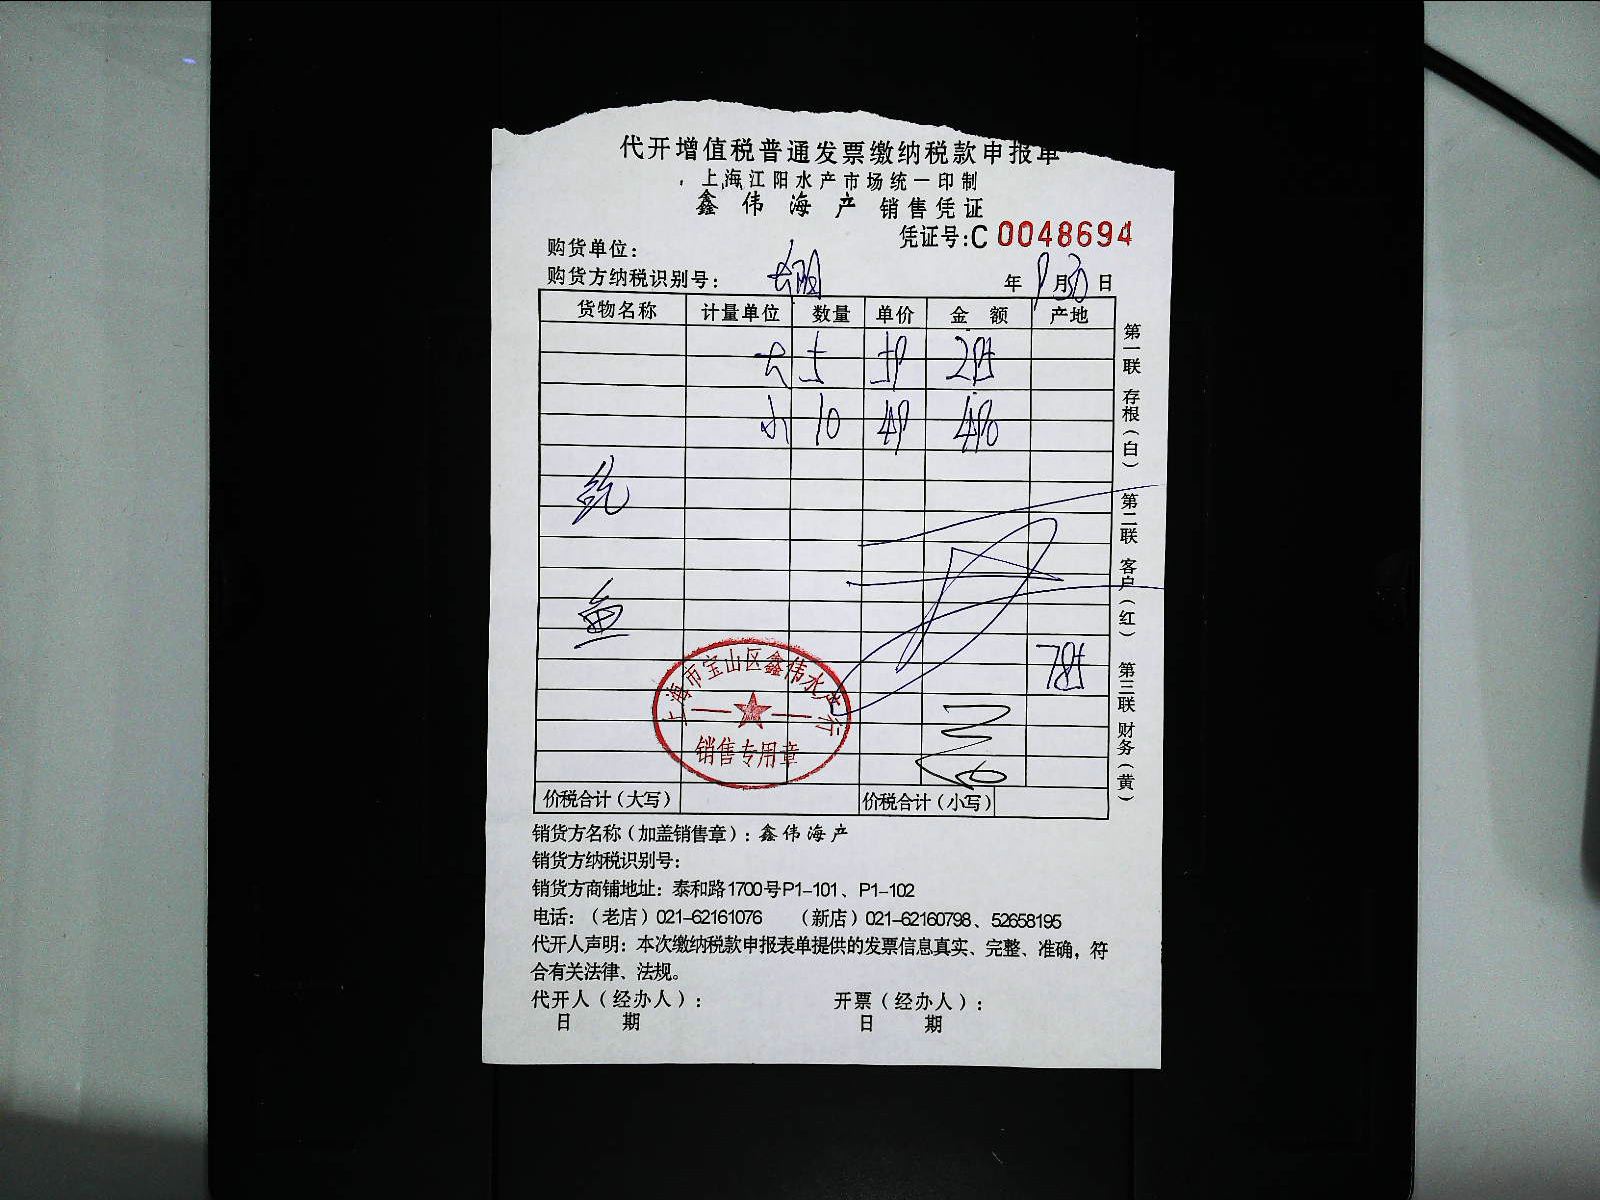 代开增值税普通发票缴纳税款申报单
上海江阳水产市场统一印制
鑫伟海产 销售凭证
凭证号:C 0048694
购货单位：
购货方纳税识别号：
年 9月30日
货物名称 计量单位 数量 单价 金额 产地
大
小 10
鱼
第一联 存根（白） 第二联 客户（红） 第三联 财务（黄）
上海市宝山区鑫伟水产行
销售专用章
价税合计（大写） 价税合计（小写）
销货方名称（加盖销售章）：鑫伟海产
销货方纳税识别号：
销货方商铺地址：泰和路1700号P1-101、P1-102
电话：（老店）021-62161076 （新店）021-62160798、52658195
代开人声明：本次缴纳税款申报表单提供的发票信息真实、完整、准确，符
合有关法律、法规。
代开人（经办人）： 开票（经办人）：
日 期 日 期